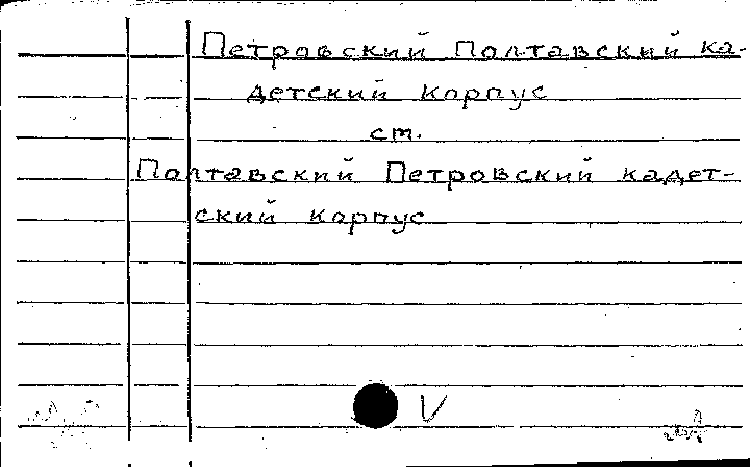 Петровский Полтавский ка-
детский корпус
ст.
Полтавский Петровский кадет-
ский корпус
V